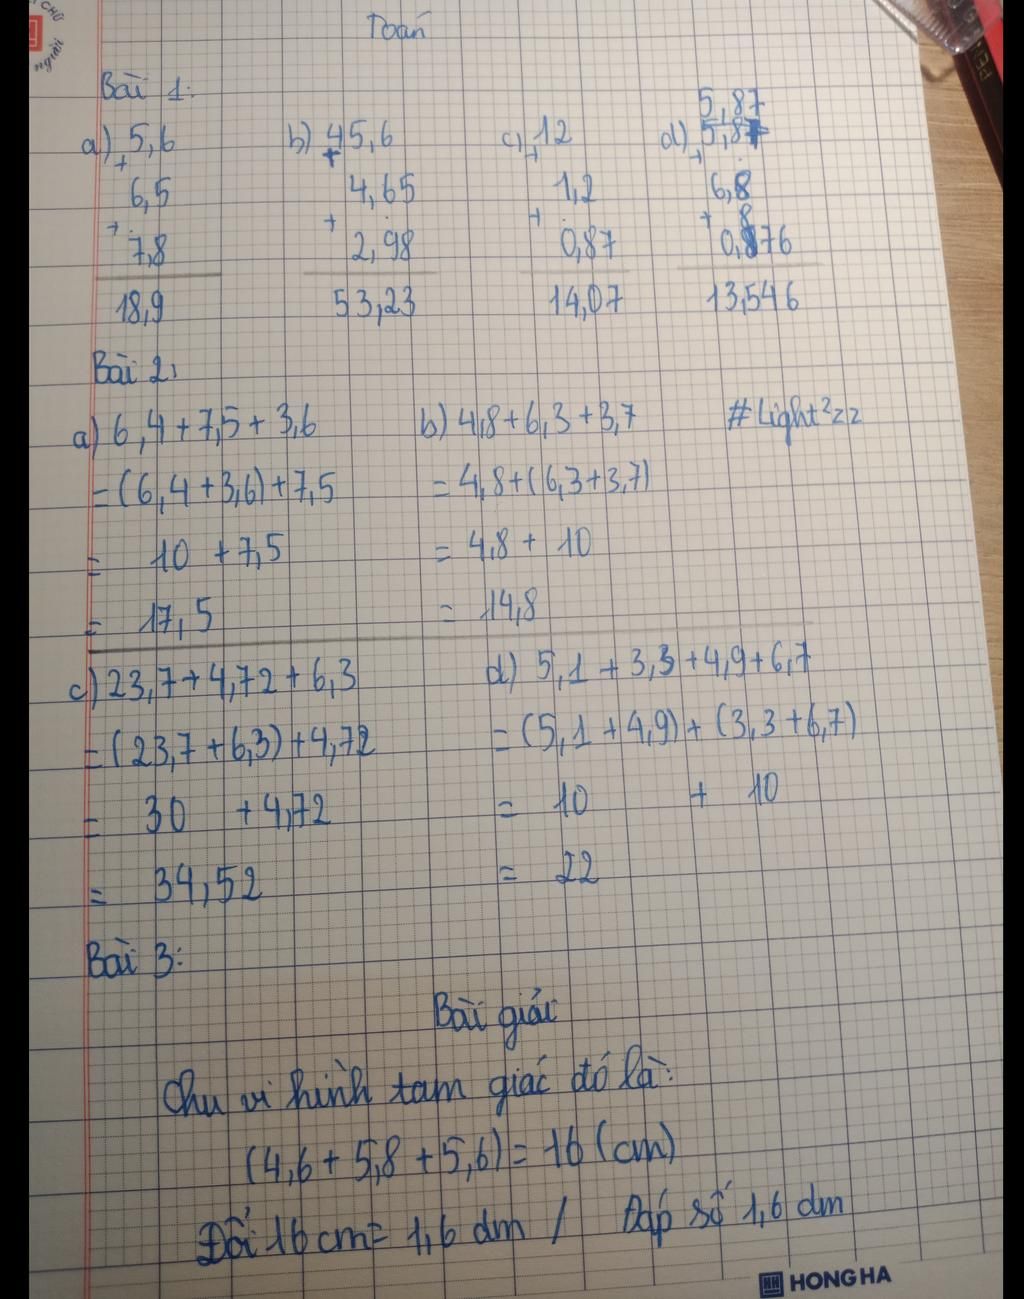 CHỮ
người
Toán
Bài 1:
5,87
a) 5,6 b) 45,6 c) 12 d) 5,87
+ + + +
6,5 4,65 1,2 6,8
+ + + + 8
7,8 2,98 0,87 0,876
18,9 53,23 14,07 13,546
Bài 2:
a) 6,4+7,5+3,6 b) 4,8+6,3+3,7 #Light²zz
=(6,4+3,6)+7,5 =4,8+(6,3+3,7)
= 10 +7,5 = 4,8 + 10
= 17,5 = 14,8
c) 23,7+4,72+6,3 d) 5,1+3,3+4,9+6,7
=(23,7+6,3)+4,72 =(5,1+4,9)+(3,3+6,7)
= 30 +4,72 = 10 + 10
= 34,52 = 22
Bài 3:
Bài giải
Chu vi hình tam giác đó là:
(4,6+5,8+5,6)=16 (cm)
Đổi 16 cm= 1,6 dm / Đáp số 1,6 dm
HH HONG HA